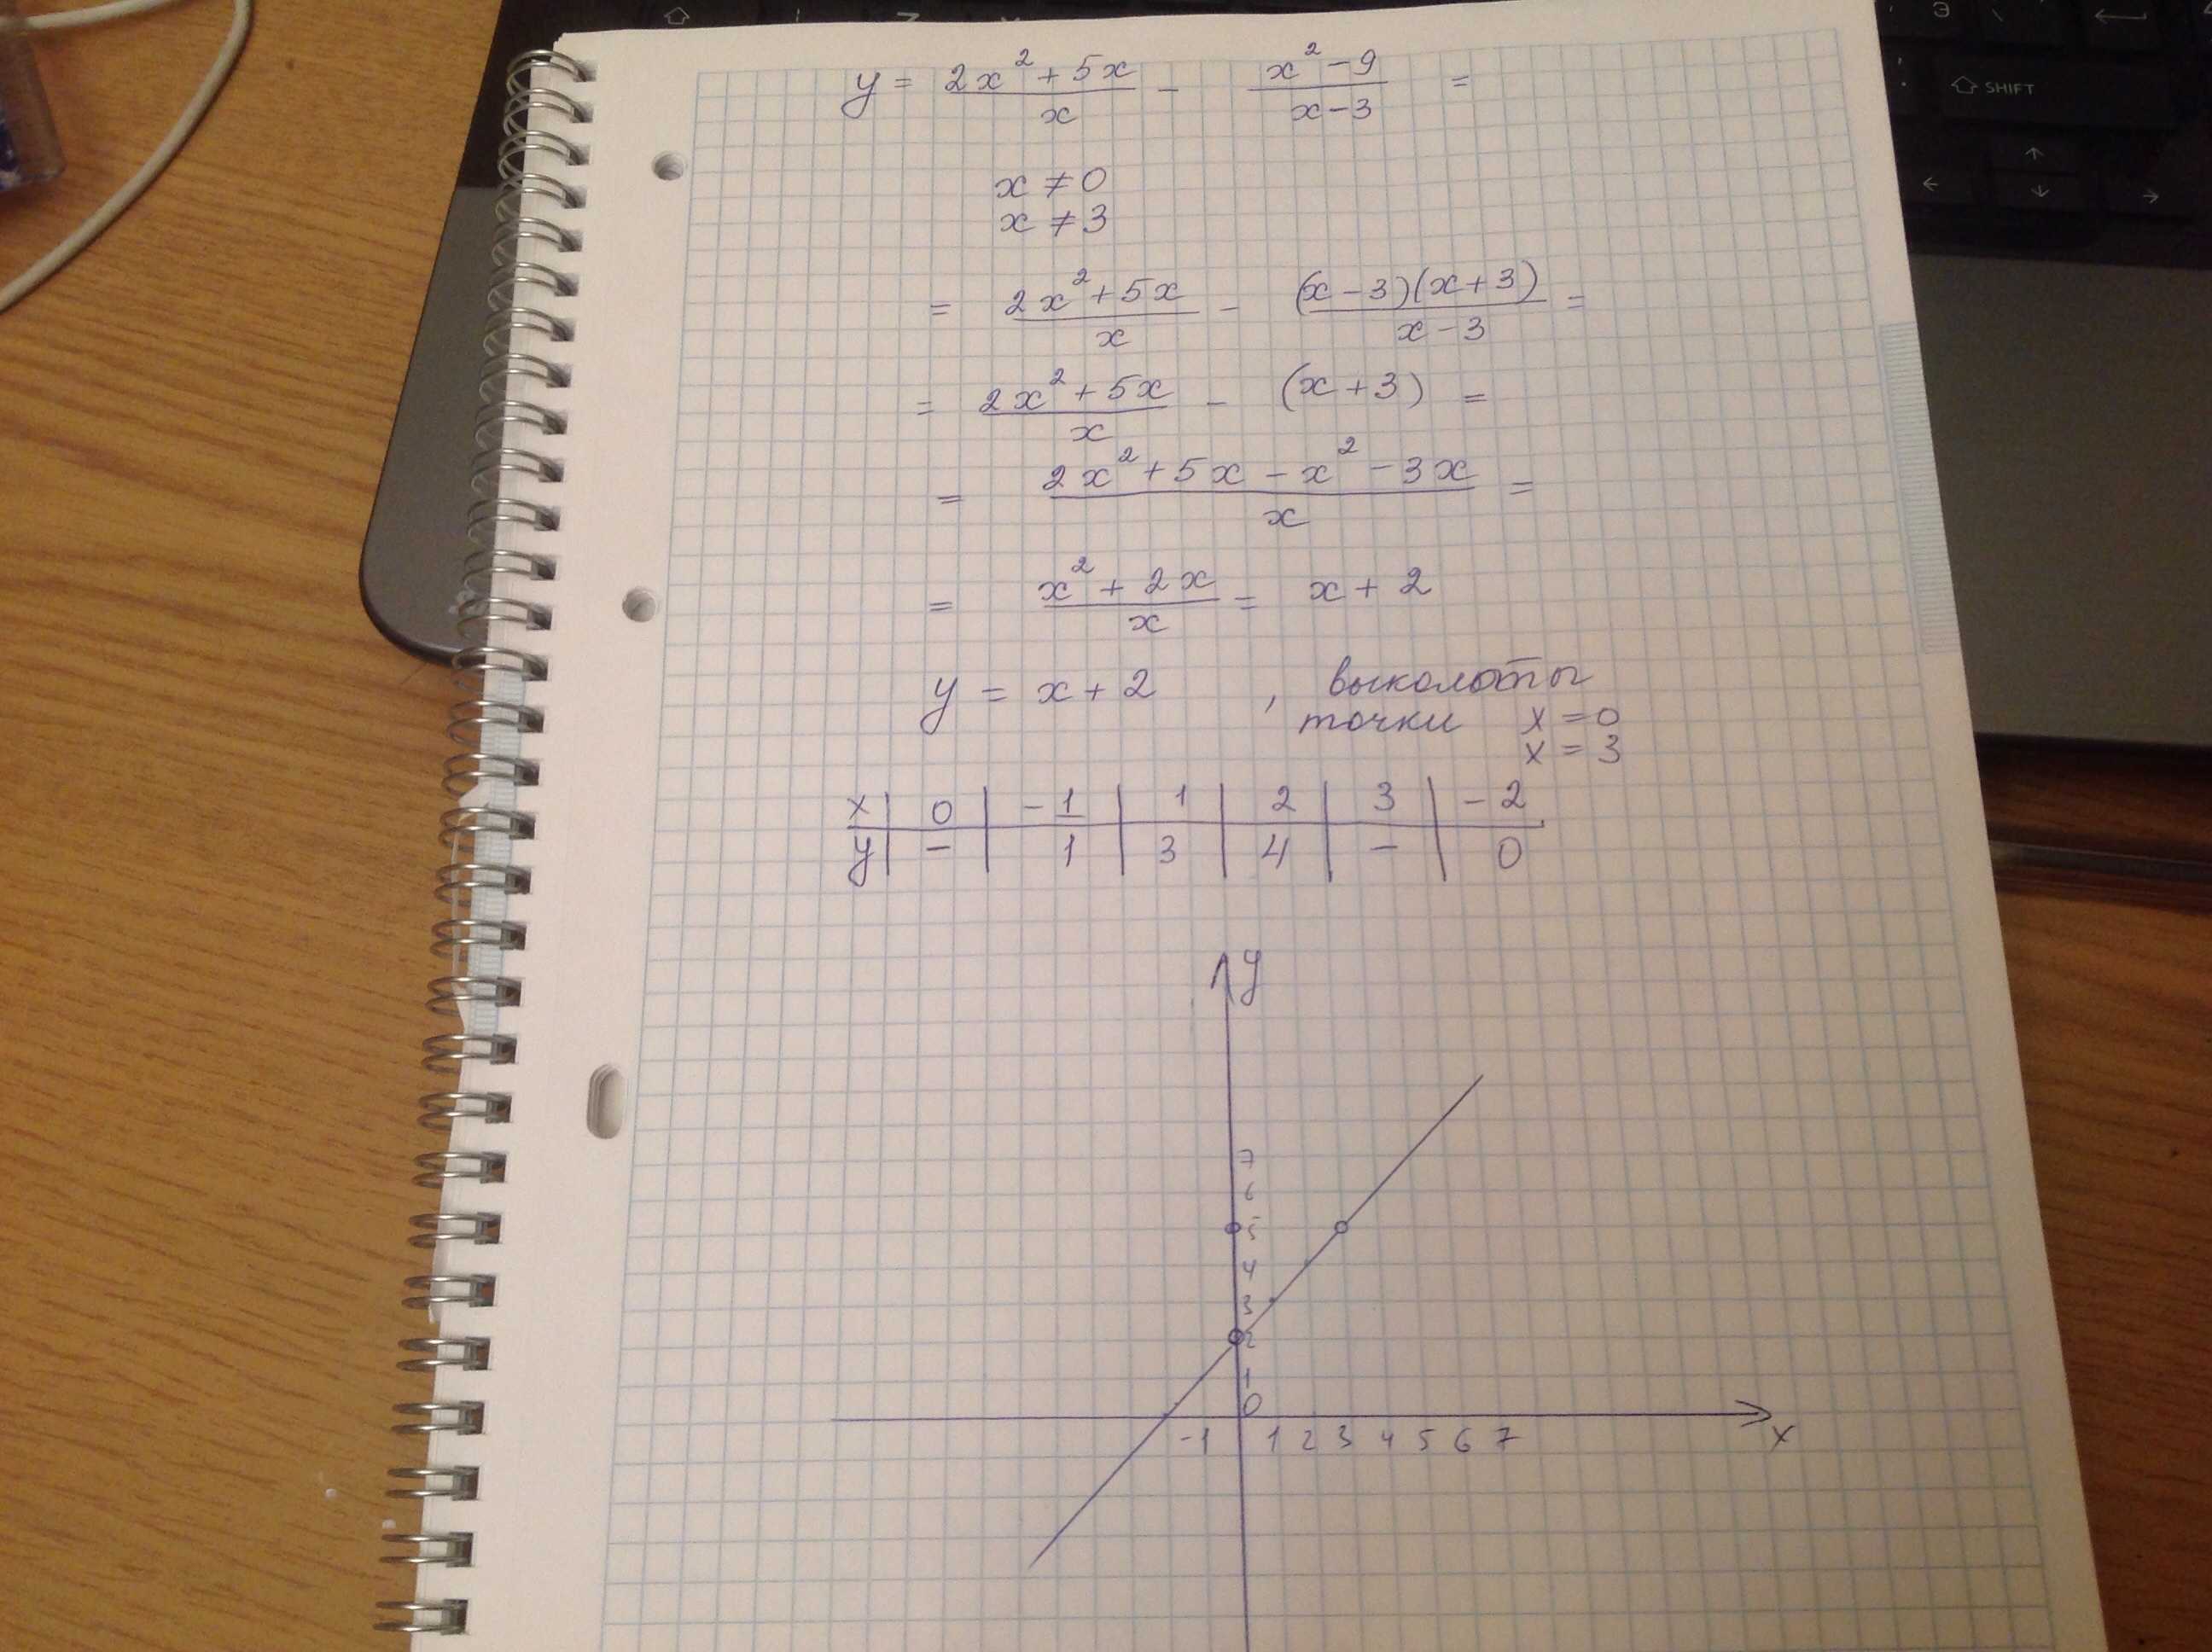 y = (2x² + 5x)/x - (x² - 9)/(x - 3) =
x ≠ 0
x ≠ 3
= (2x² + 5x)/x - ((x - 3)(x + 3))/(x - 3) =
= (2x² + 5x)/x - (x + 3) =
= (2x² + 5x - x² - 3x)/x =
= (x² + 2x)/x = x + 2
y = x + 2 , выколоты
точки x = 0
x = 3
x | 0 | -1 | 1 | 2 | 3 | -2
y | - | 1 | 3 | 4 | - | 0
y
7
6
5
4
3
2
1
0
-1 1 2 3 4 5 6 7 x
SHIFT
Э